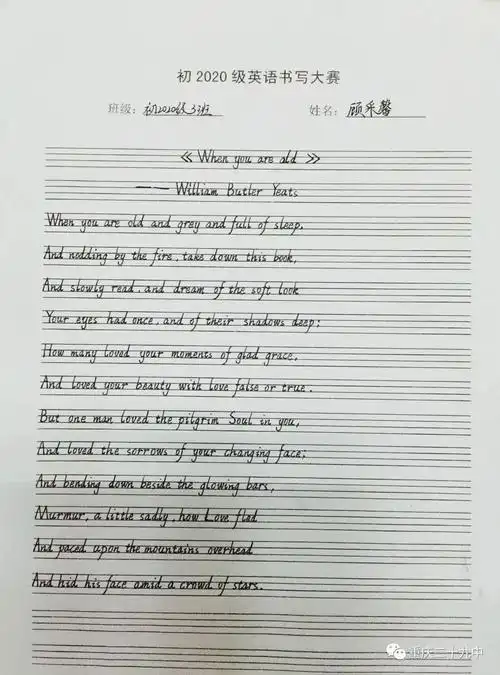 初2020级英语书写大赛
班级：初2020级3班 姓名：顾采馨
《When you are old》
——William Butler Yeats
When you are old and grey and full of sleep.
And nodding by the fire, take down this book,
And slowly read, and dream of the soft look
Your eyes had once, and of their shadows deep;
How many loved your moments of glad grace,
And loved your beauty with love false or true.
But one man loved the pilgrim Soul in you,
And loved the sorrows of your changing face;
And bending down beside the glowing bars,
Murmur, a little sadly, how Love fled
And paced upon the mountains overhead
And hid his face amid a crowd of stars.
重庆二十九中